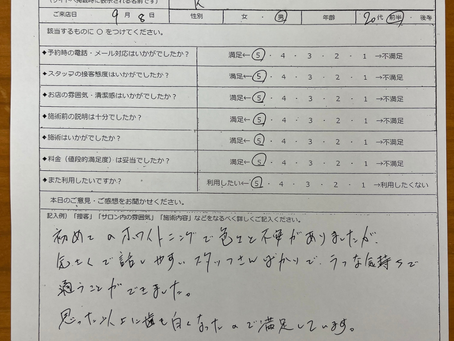 K
ご来店日 9月 8日 性別 女・男 年齢 20代 前半・後半
該当するものに○をつけてください。
◆予約時の電話・メール対応はいかがでしたか? 満足← 5・4・3・2・1 →不満足
◆スタッフの接客態度はいかがでしたか? 満足← 5・4・3・2・1 →不満足
◆お店の雰囲気・清潔感はいかがでしたか? 満足← 5・4・3・2・1 →不満足
◆施術前の説明は十分でしたか? 満足← 5・4・3・2・1 →不満足
◆施術はいかがでしたか? 満足← 5・4・3・2・1 →不満足
◆料金(値段的満足度)は妥当でしたか? 満足← 5・4・3・2・1 →不満足
◆また利用したいですか? 利用したい← 5・4・3・2・1 →利用したくない
本日のご意見・ご感想をお聞かせください。
記入例)「接客」「サロン内の雰囲気」「施術内容」などをなるべく詳しくご記入ください。
初めてのホワイトニングで色々と不安がありましたが、
気さくで話しやすいスタッフさんばかりで、ラフな気持ちで
通うことができました。
思った以上に歯も白くなったので満足しています。